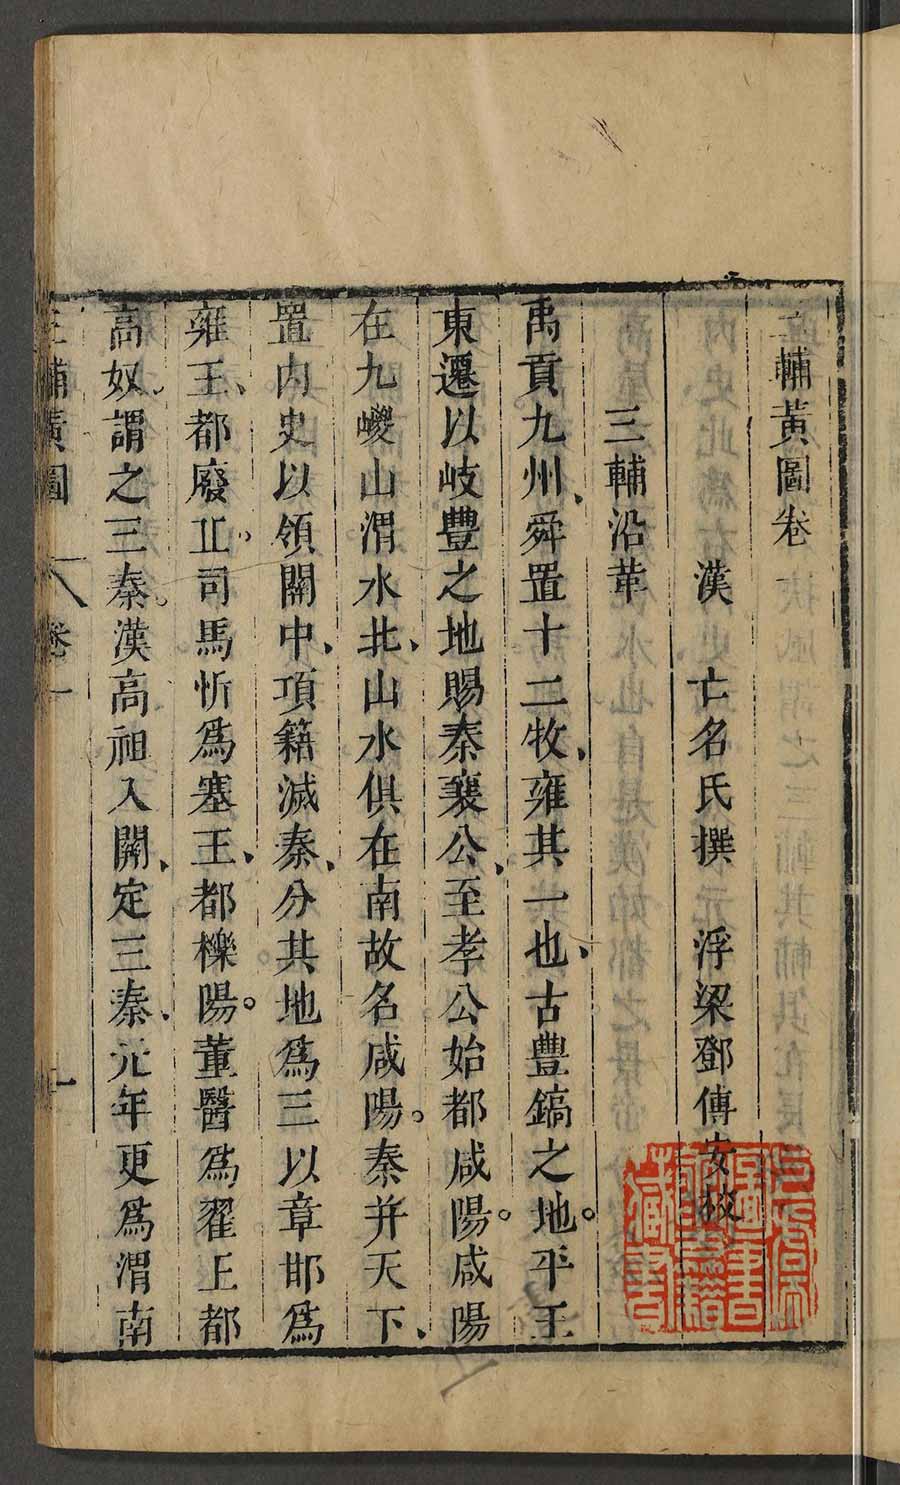 三輔黃圖卷一
漢 亡名氏撰 浮梁鄧傳安校
三輔沿革
禹貢九州、舜置十二牧、雍其一也、古豐鎬之地。平王
東遷以岐豐之地賜秦襄公、至孝公始都咸陽。咸陽
在九嵕山渭水北、山水俱在南故名咸陽。秦并天下、
置內史以領關中、項籍滅秦、分其地爲三以章邯爲
雍王、都廢丘。司馬忻爲塞王、都櫟陽。董醫爲翟王都
高奴。謂之三秦。漢高祖入關、定三秦、元年更爲渭南
三輔黃圖 卷一 一